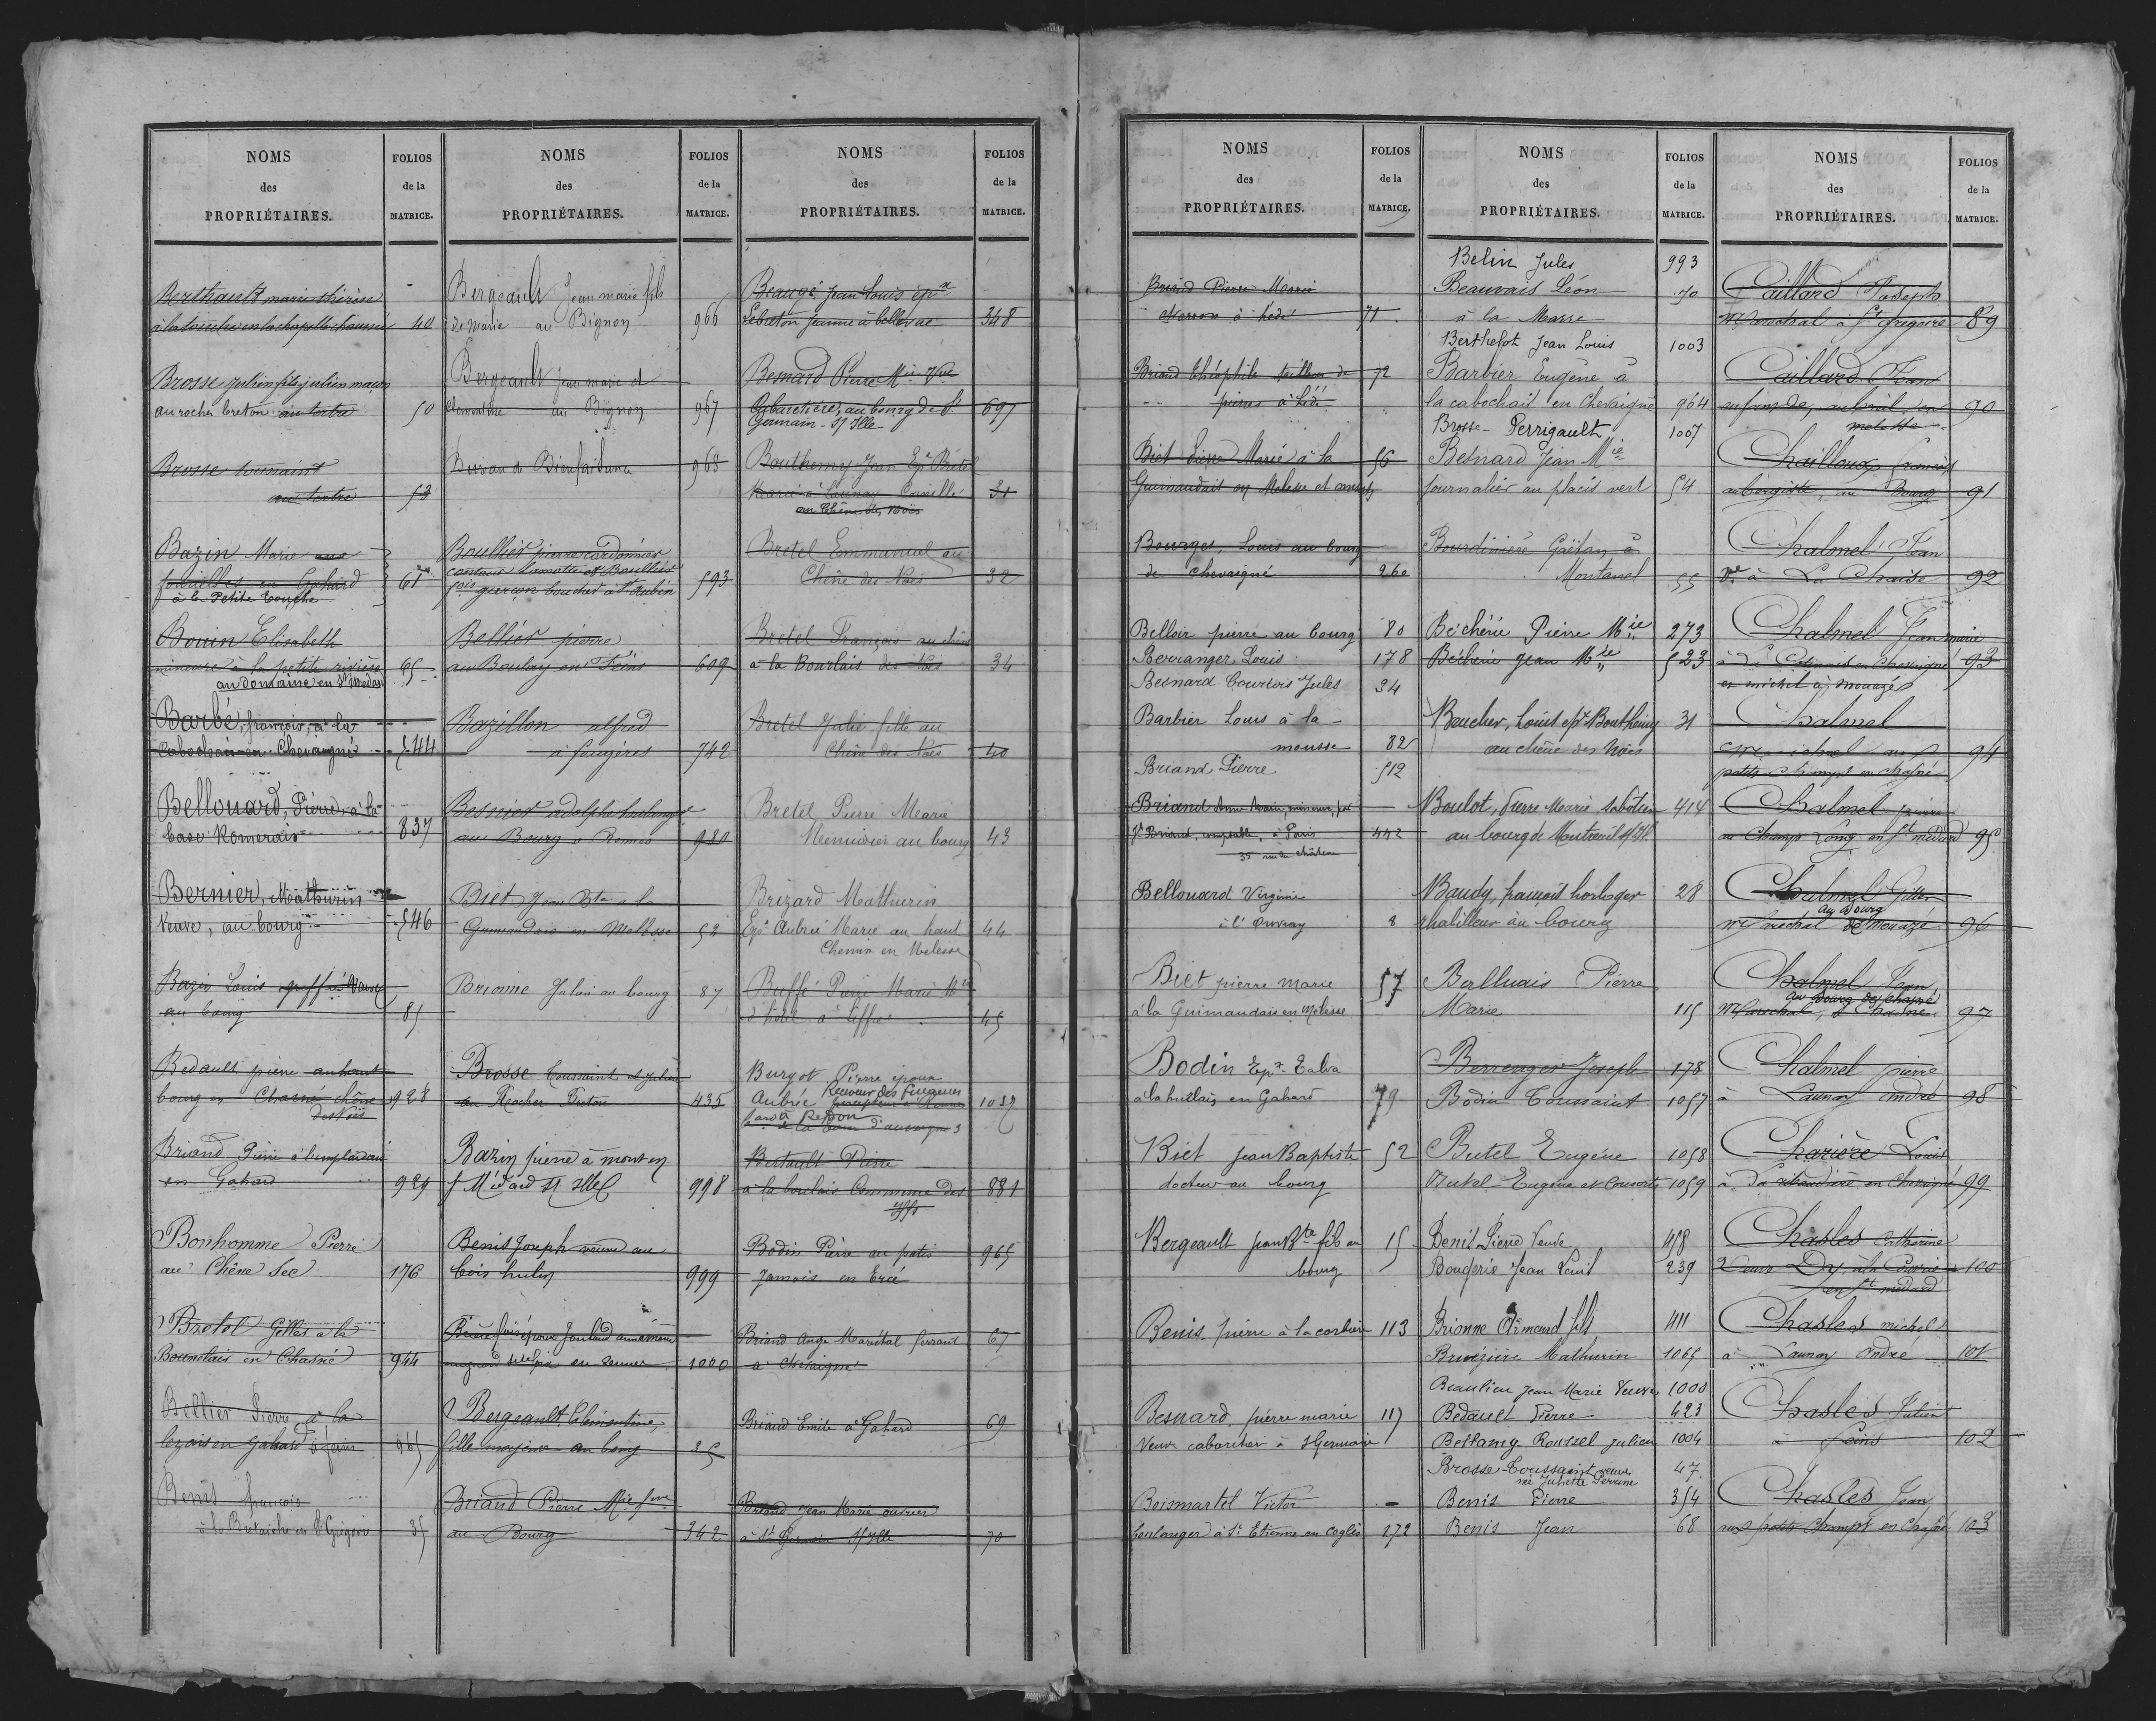 NOMS
des
PROPRIÉTAIRES.
FOLIOS
de la
MATRICE.
Berthault marie thérèse
à la touche en la chapelle chaussée 40
Brosse julien fils julien maçon
au rocher breton au tertre 50
Brosse toussaint
au tertre 53
Bazin Marie
en Gahard 61
à la Petite touche
Bouin Elisabeth
mineure à la petite rivière 65
au domaine en St Médard
Barbé, françois, à la
cabochais en Chevaigné 544
Bellouard, Pierre, à la
base Romerais 837
Bernier, Mathurin
veuve, au bourg 546
Bazin Louis greffier
au bourg 81
Bedault pierre au haut
bourg en Chasné chêne 928
des Noës
Briand Pierre
en Gahard 929
Bonhomme Pierre
au Chêne Sec 176
Bretel Gilles à la
Bourdais en Chasné 944
Bellier Pierre à la
en Gahard à feins 965
Benis françois
à la en St Grégoire 35
NOMS
des
PROPRIÉTAIRES.
FOLIOS
de la
MATRICE.
Bergeault Jean marie fils
de marie au Bignon 966
Bergeault Jean marie et
Clementine au Bignon 967
Bureau de Bienfaisance 968
Boullier pierre cordonnier
et Boullier
fois garçon boucher à St Aubin 593
Bellier pierre
au Boulay en Feins 609
Bazillon alfred
à fougères 742
Besnier adolphe horloger
au Bourg à Rennes 980
Biet Jean Bte à la
Guimondais en Melesse 52
Brionne Julien au bourg 87
Brosse Toussaint et Julien
au Rocher Breton 435
Bazin pierre à mont en
St Médard S/ Ille 998
Benis Joseph veuve au
bois hulin 999
1000
Bergeault Clémentine,
fille majeure au bourg 25
Briand Pierre Mie fme
au Bourg 342
NOMS
des
PROPRIÉTAIRES.
FOLIOS
de la
MATRICE.
Beaugé Jean Louis épx
Lebreton Jeanne à bellevue 348
Besnard Pierre Mie Vve
Cabaretière, au bourg de St 697
Germain S/ Ille
Bouthemy Jean Epx Bretel
Marie à Launay Cornille 31
au Chêne des Noës
Bretel Emmanuel au
Chêne des Noës 32
Bretel François au chêne
à la Bourdais des Noës 34
Bretel Julie fille au
Chêne des Noës 40
Bretel Pierre Marie
Menuisier au bourg 43
Brizard Mathurin
Epx Aubrée Marie au haut 44
Chemin en Melesse
Buffé Pierre Marie
à Liffré 45
Burgot Pierre époux
Receveur des finances
Aubrée percepteur à Rennes 1037
à Redon
de la Tour d'auvergne 3
Bertault Pierre
à la boulais Commune des 881
Iffs
Bodin Pierre au patis
Jamois en Ercé 965
Briand Ange Maréchal ferrant 67
à Chevaigné
Briand Emile à Gahard 69
Briand Jean Marie ouvrier
à St Germain S/ Ille 70
NOMS
des
PROPRIÉTAIRES.
FOLIOS
de la
MATRICE.
Briand Pierre Marie
à hédé 71
Briand Théophile tailleur de 72
pierres à hédé
Biet Pierre Marie à la 56
Guimondais en Melesse et consorts
Bourges, Louis au bourg
de Chevaigné 260
Belloir pierre au bourg 80
Berranger Louis 178
Besnard Courtois Jules 34
Barbier Louis à la
mousse 82
Briand Pierre 512
Briand Anne Marie, mineure, par
Vve Briand, comptable, à Paris 442
35 rue du Château
Bellouard Virginie
à l'Ouvray 8
Biet pierre marie 57
à la Guimaudais en Melesse
Bodin Epx Talva
à la en Gahard 79
Biet Jean Baptiste 52
docteur au bourg
Bergeault Jean Bte fils au 15
bourg
Benis pierre à la corbière 113
Besnard, pierre marie 117
Veuve cabaretier à St Germain
Boismartel Victor
boulanger à St Etienne en Coglès 172
NOMS
des
PROPRIÉTAIRES.
FOLIOS
de la
MATRICE.
Belin Jules 993
Beauvais Léon 70
à la Masse
Berthelot Jean Louis 1003
Barbier Eugène à
la cabochais en Chevaigné 964
Brosse-Perrigault 1007
Besnard Jean Mie
journalier au placis vert 54
Bourdinière Gaëtan à
Montanel 55
Béchérie Pierre Mie 273
Béchérie Jean Mie 523
Boucher, Louis epx Bouthemy 31
au chêne des Noës
Boulot, Pierre Marie sabotier 414
au bourg de Montreuil S/ Ille
Baudy, françois horloger 28
rhabilleur au bourg
Balluais Pierre
Marie 115
Berrenger Joseph 178
Bodin Toussaint 1057
Butel Eugène 1058
Butel Eugène et Consorts 1059
Benis Pierre Veuve 418
Bougerie Jean Louis 239
Brionne Armand fils 411
Bruézière Mathurin 1065
Beaulieu Jean Marie Veuve 1000
Bedault Pierre 423
Bellamy-Roussel Julien 1004
Brosse Toussaint veuve 47
née Juhette Perrine
Benis Pierre 354
Benis Jean 68
NOMS
des
PROPRIÉTAIRES.
FOLIOS
de la
MATRICE.
Caillard Joseph
Mal à St Gregoire 89
Caillard Jean
90
melesse
Chailloux françois
aubergiste, au Bourg 91
Chalmel Jean
Vve à La Chaise 92
Chalmel Jean marie
à la en Chevaigné 93
et michel à mouazé
Chalmel
michel aux 94
petits Champs en chasné
Chalmel pierre
au Champ Long en St médard 95
Chalmel Gilles
au Bourg
Maréchal de Mouazé 96
Chalmel Jean,
au Bourg de Chasné
Maréchal, à Chasné 97
Chalmel pierre
à Launay André 98
Charière Louis
à La en Chevaigné 99
Chasles Catherine
Veuve Dy, 100
en St médard
Chasles michel
à Launay André 101
Chasles Julien
à Feins 102
Chasles Jean
aux petits Champs en Chasné 103